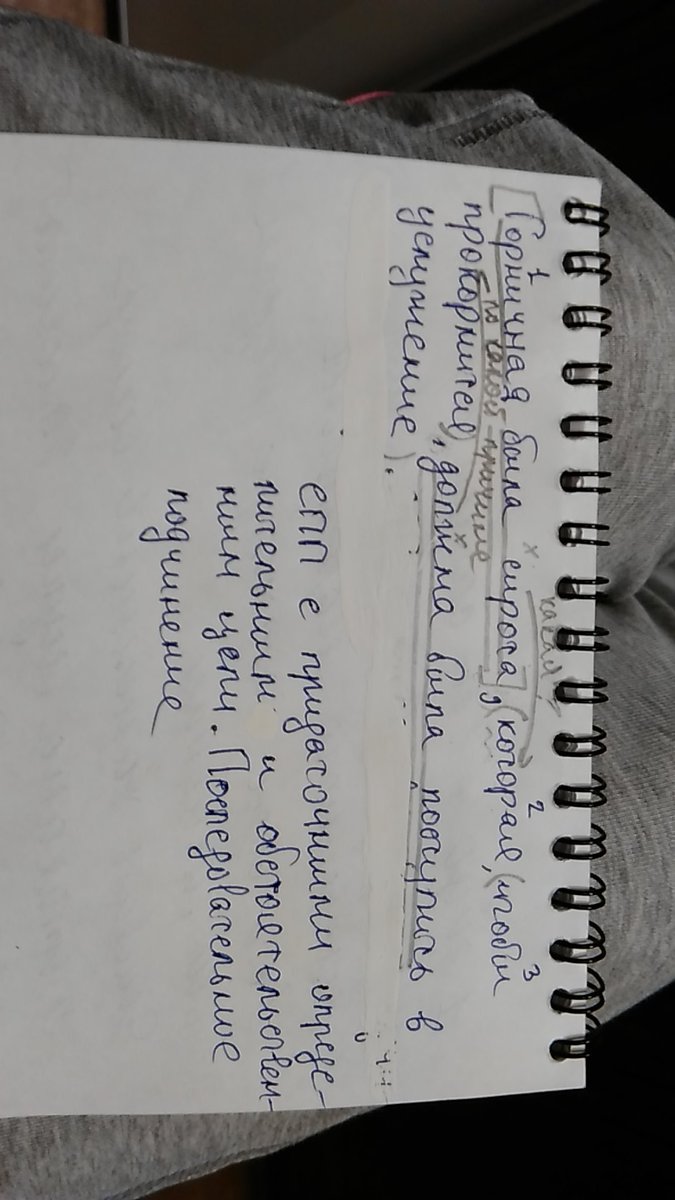 какая?
1 2 3
[Горничная была сирота], (которая, (чтобы
по какой причине
прокормиться), должна была поступить в
услужение).
СПП с придаточными опреде-
лительным и обстоятельствен-
ным цели. Последовательное
подчинение